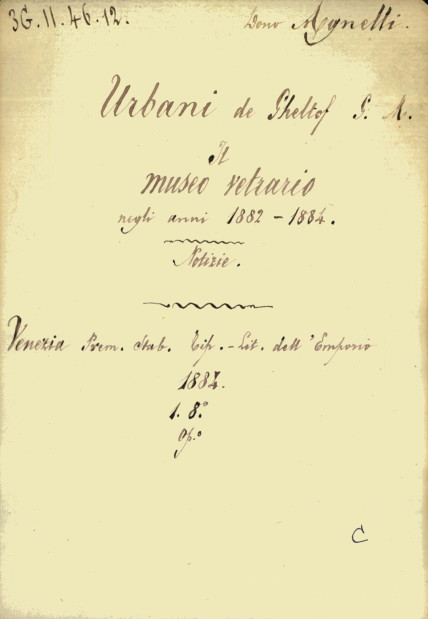 3G.11.46.12.
Dono Agnelli.
Urbani de Gheltof G. M.
Il
museo vetrario
negli anni 1882-1884.
Notizie.
Venezia Prem. Stab. Tip.-Lit. dell'Emporio
1884.
1. 8.°
Op.°
C